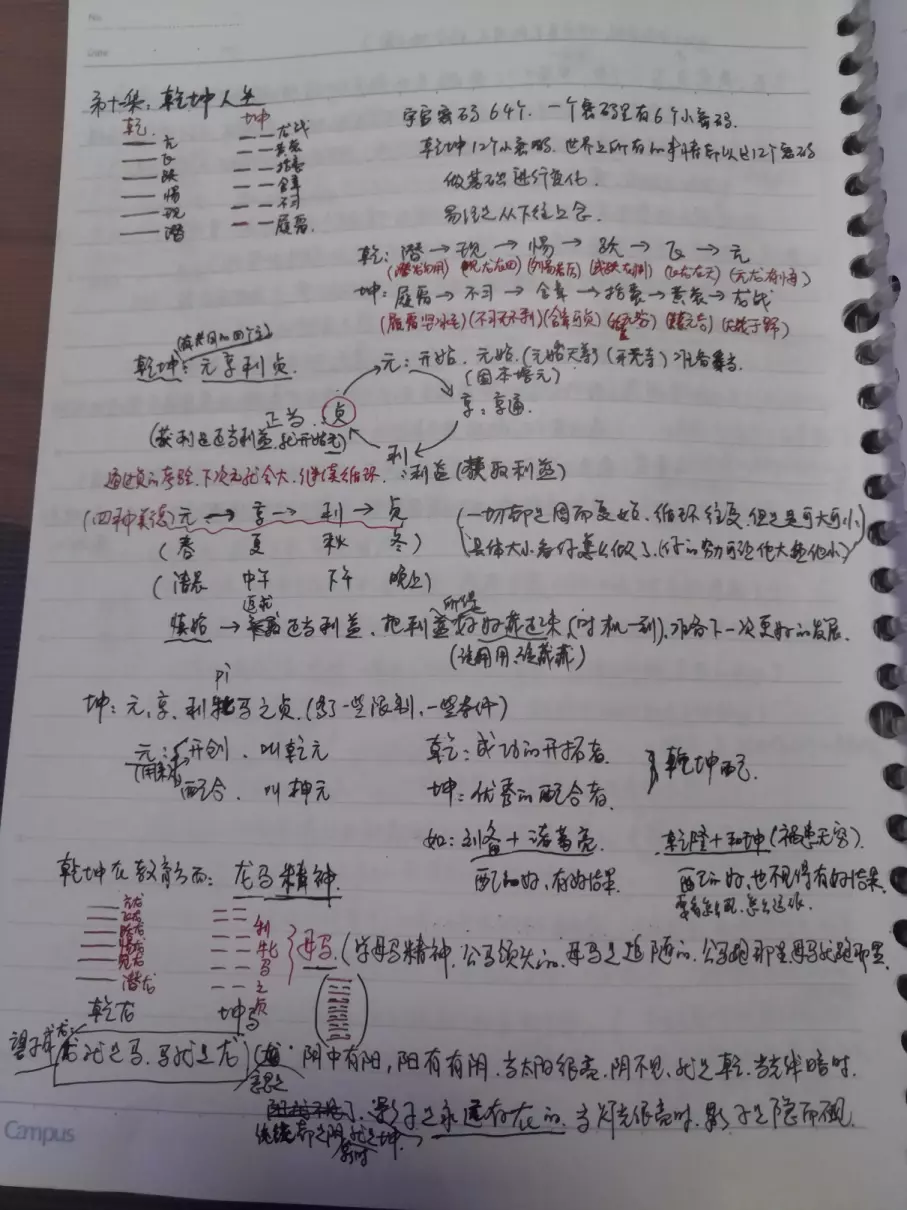 No.
Date
第十集：乾坤人生
乾 坤
亢 龙战
飞 黄裳
跃 括囊
惕 含章
现 不习
潜 履霜
宇宙密码64个.一个密码里有6个小密码.
乾坤12个小密码.世界上所有的事情都以这12个密码
做基础进行变化.
易经是从下往上念.
乾：潜→现→惕→跃→飞→亢
(潜龙勿用)(现龙在田)(夕惕若厉)(或跃在渊)(飞龙在天)(亢龙有悔)
坤：履霜→不习→含章→括囊→黄裳→龙战
(履霜坚冰至)(不习无不利)(含章可贞)(无咎)(元吉)(龙战于野)
乾坤：元亨利贞.
元：开始.元始.(元始天尊)(开元寺)
(固本培元)
亨：亨通.
正当.贞
(获利是正当利益,就开始元)
利：利益(获取利益)
通过贞的考验.下次元就会大.继续循环.
(四种美德)元→亨→利→贞
(春 夏 秋 冬)
(清晨 中午 下午 晚上)
(一切都是周而复始.循环往复.但是是可大可小)
(具体大小看你怎么做了.(你的努力可让他大让他小)
追求 所得
慎始→正当利益.把利益好好藏起来(时机一到).准备下一次更好的发展.
(该用用.该藏藏)
pì
坤：元.亨.利牝马之贞.(多了一些限制.一些条件)
元：开创.叫乾元
配合.叫坤元
乾：成功的开拓者.
坤：优秀的配合者.
乾坤配.
如：刘备+诸葛亮 乾隆+和坤
配的好,有好结果. 配的好,也不见得有好结果.
乾坤在教育方面：龙马精神.
亢龙
飞龙
跃龙
惕龙
见龙
潜龙
利
牝
马
之
贞
母马.(学母马精神.公马领头的.母马是追随的.公马跑那里母马就跑那里.
乾龙 坤马
望子成龙：
龙就是马.马就是龙)
意思是
阴中有阳,阳有有阴.当太阳很亮.阴不见.就是乾.当光线暗时.
影子是永远存在的.当灯光很亮时.影子是隐而不现.
统统都是阴.就是坤.